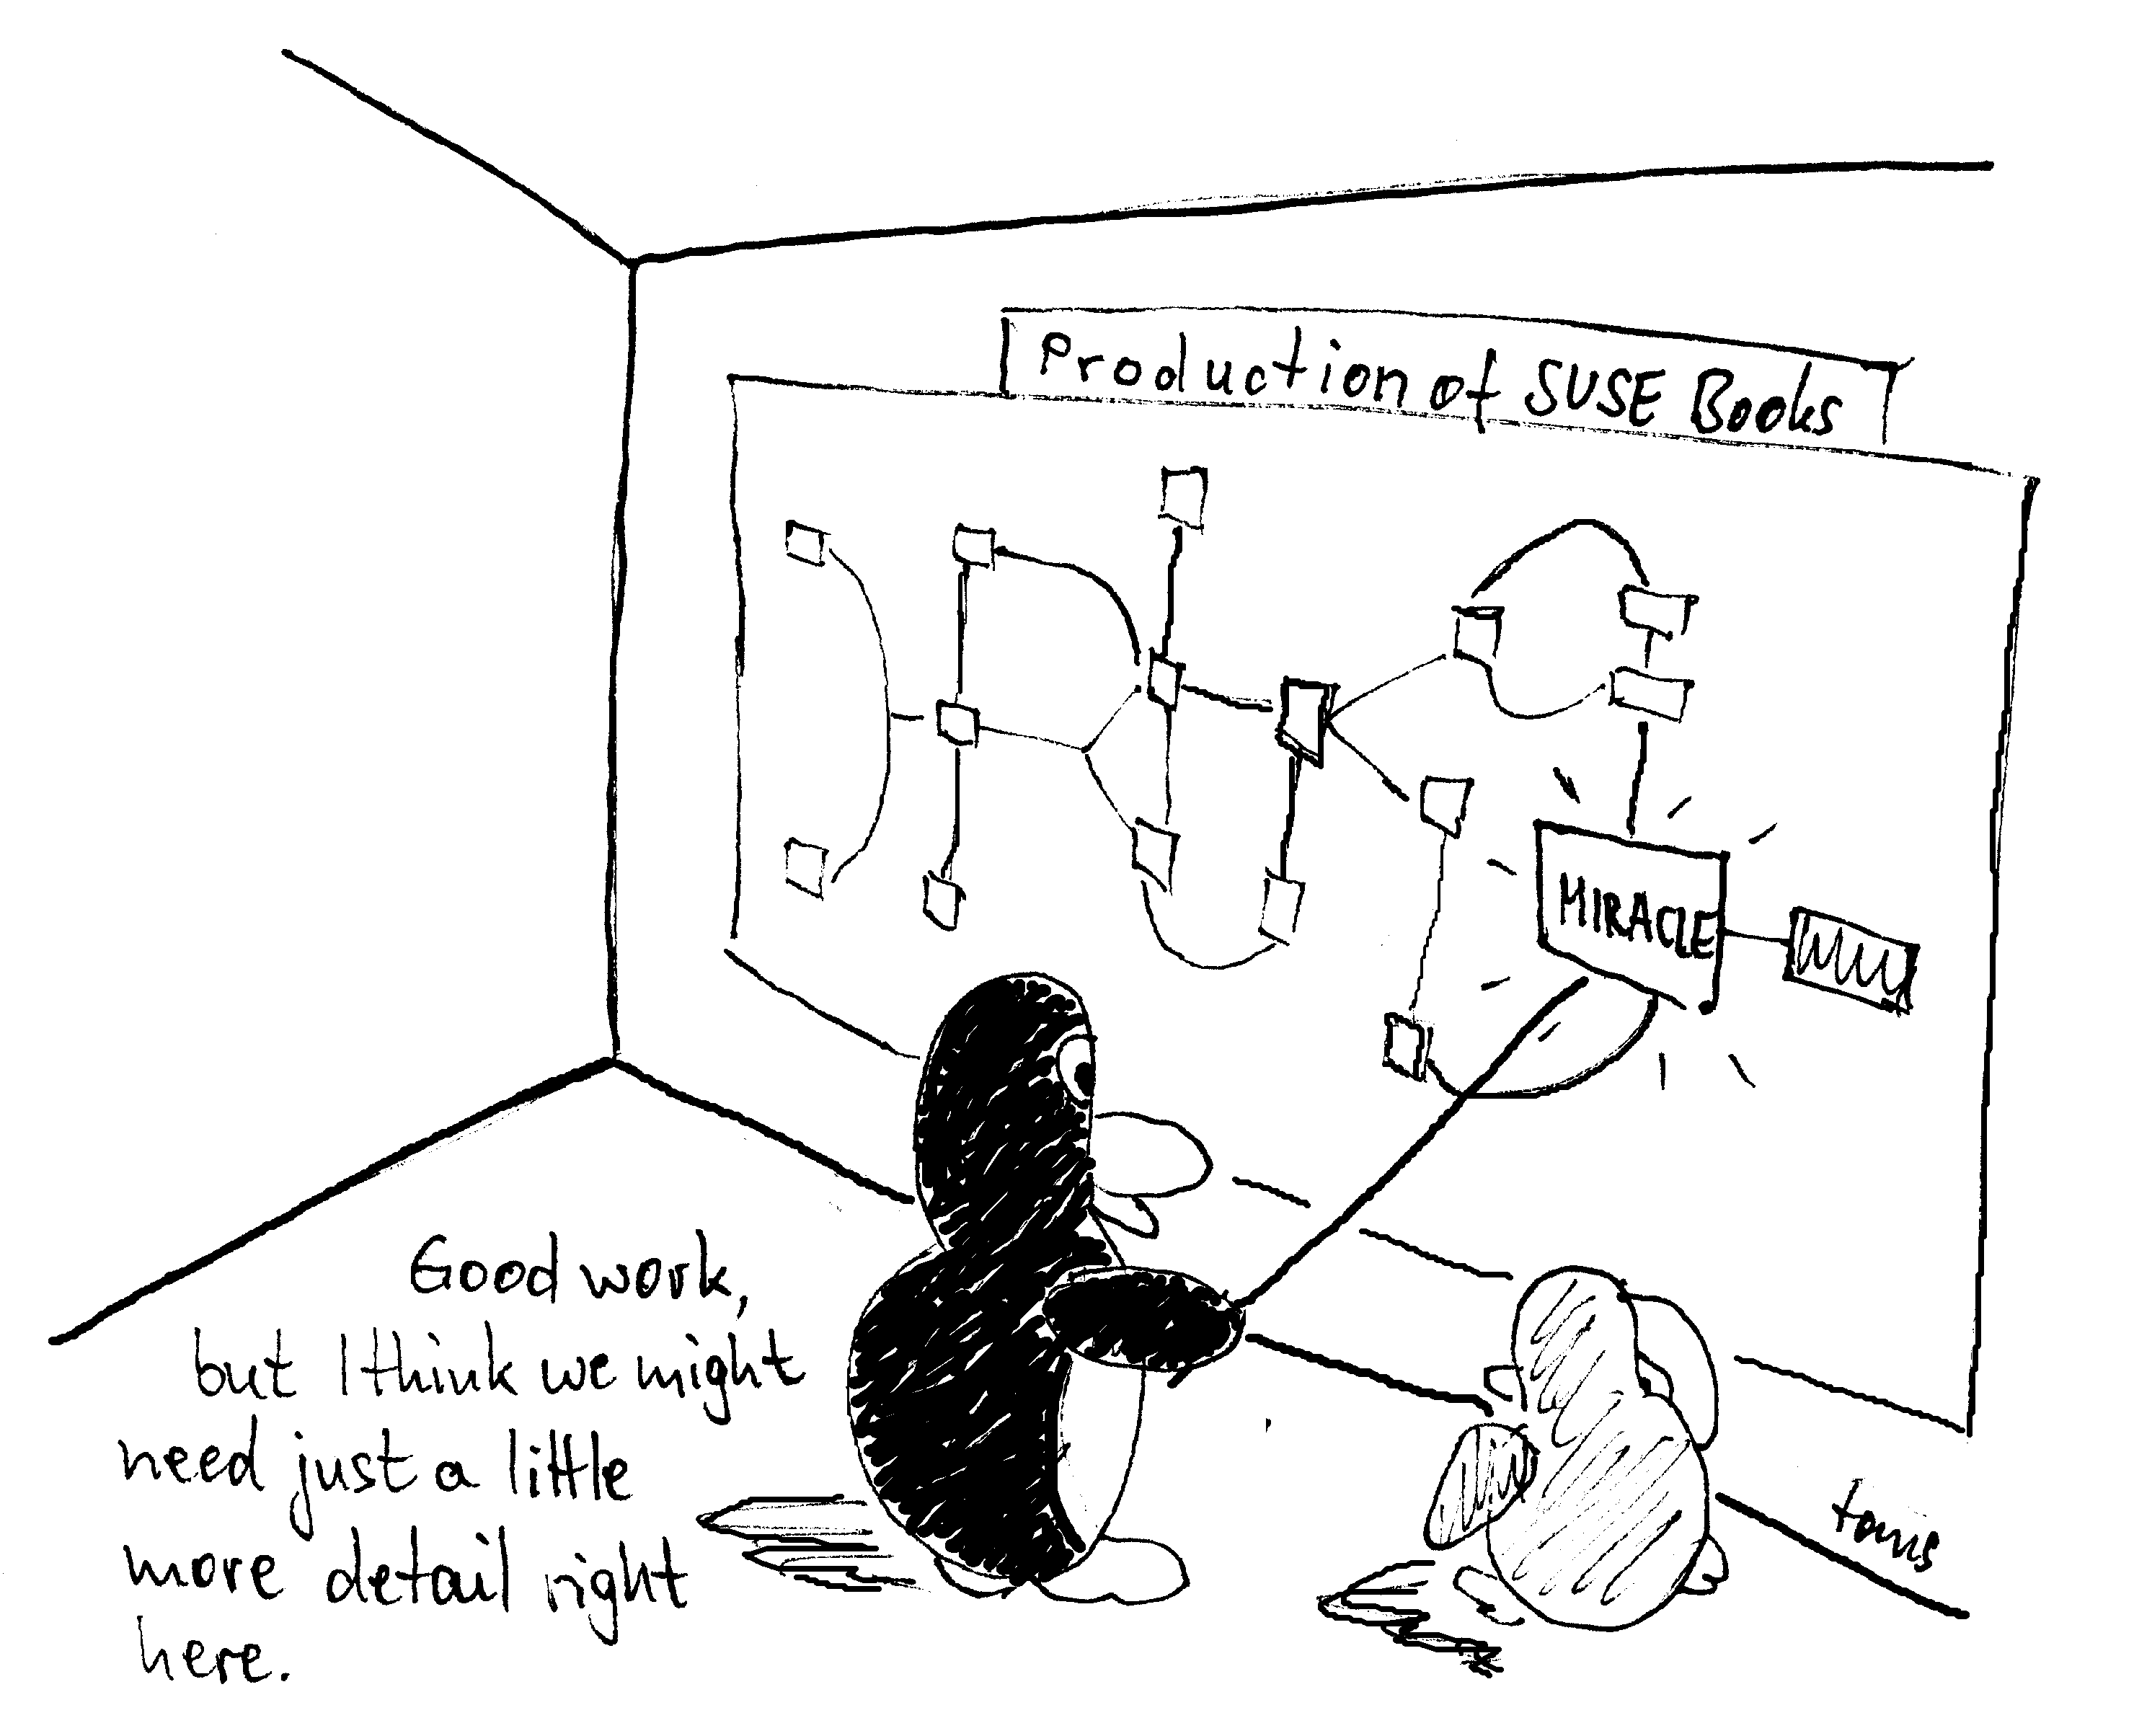 Production of SUSE Books
MIRACLE
Good work,
but I think we might
need just a little
more detail right
here.
toms